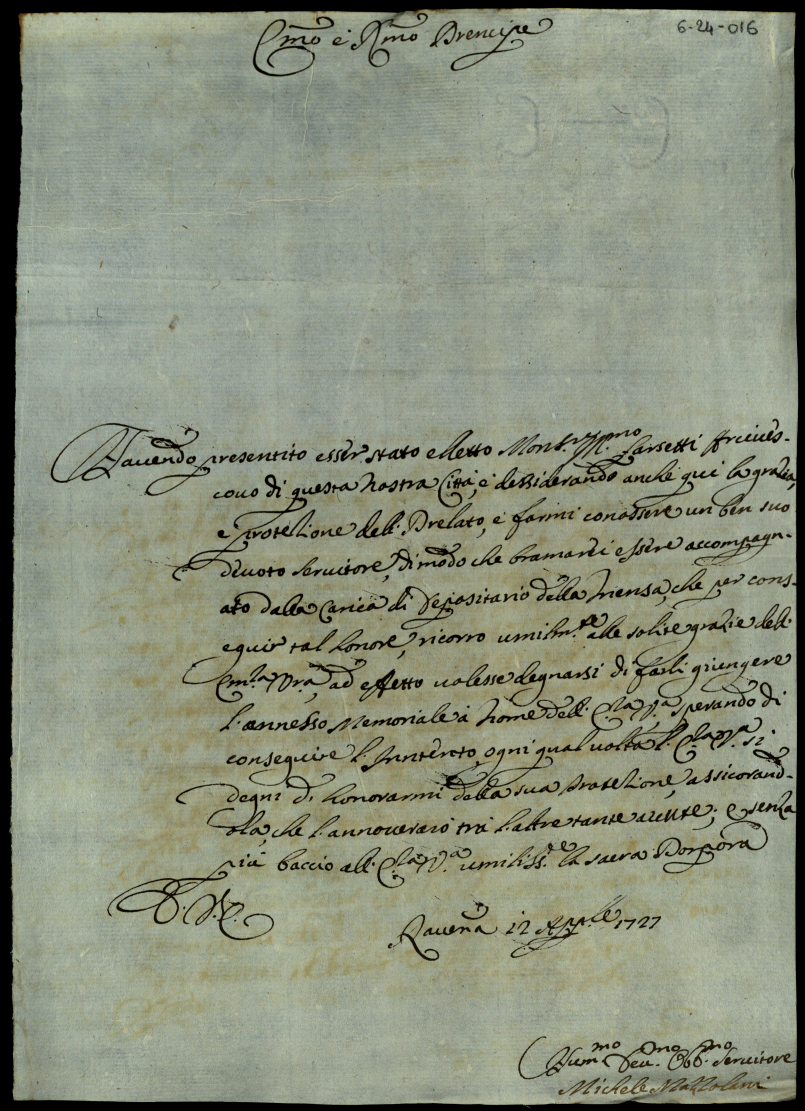 6-24-016
Em̃o e Rm̃o Prencipe
Hauendo presentito esser stato elletto Mons.r Ill.mo Farsetti Arciues-
couo di questa nostra Città, e dessiderando anche qui la grazia,
e protetione dell: Prelato, e farmi conossere un ben suo
deuoto seruitore, di modo che bramarei essere accompagn-
ato dalla Carica di Depositario della Mensa, che per cons-
eguir tal honore, ricorro umilm.te alle solite grazie dell:
Em.za Vra, ad effetto uolesse degnarsi di farli giungere
l'annesso Memoriale à nome dell: E.za V.a, sperando di
conseguire l'Inntento, ogni qual uolta l: E.za V.a si
degni di honorarmi della sua protetione, assicorand-
ola, che l'annouerarò trà l'altre tante auute; e senza
più baccio all: E.za V.a umiliss.e la sacra Porpora
D. V. E.
Rauena 12 App.lle 1727
Hum.mo Deu.mo Obb.mo Seruitore
Michele Mazzolani